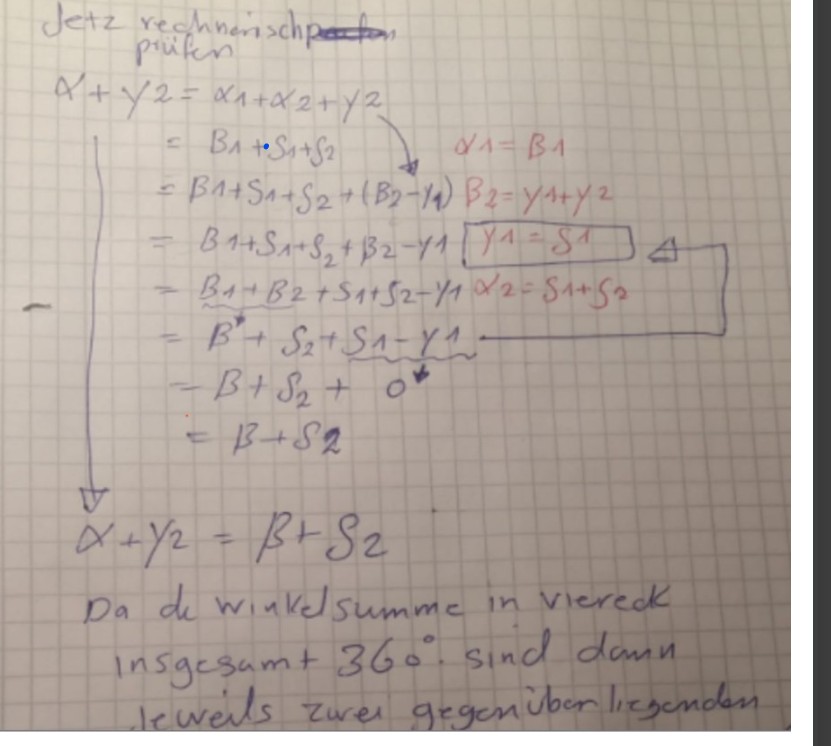 Jetz rechnerisch
prüfen
α + γ2 = α1+α2+γ2
= B1+S1+S2 α1 = B1
= B1+S1+S2+(B2-γ1) B2 = γ1+γ2
= B1+S1+S2+B2-γ1 γ1 = S1
= B1+B2+S1+S2-γ1 α2 = S1+S2
= B + S2+S1-γ1
= B+S2+ 0
= B+S2
α+γ2 = β+S2
Da de winkelsumme in viereck
insgesamt 360°. sind dann
jeweils zwei gegenüberliegenden